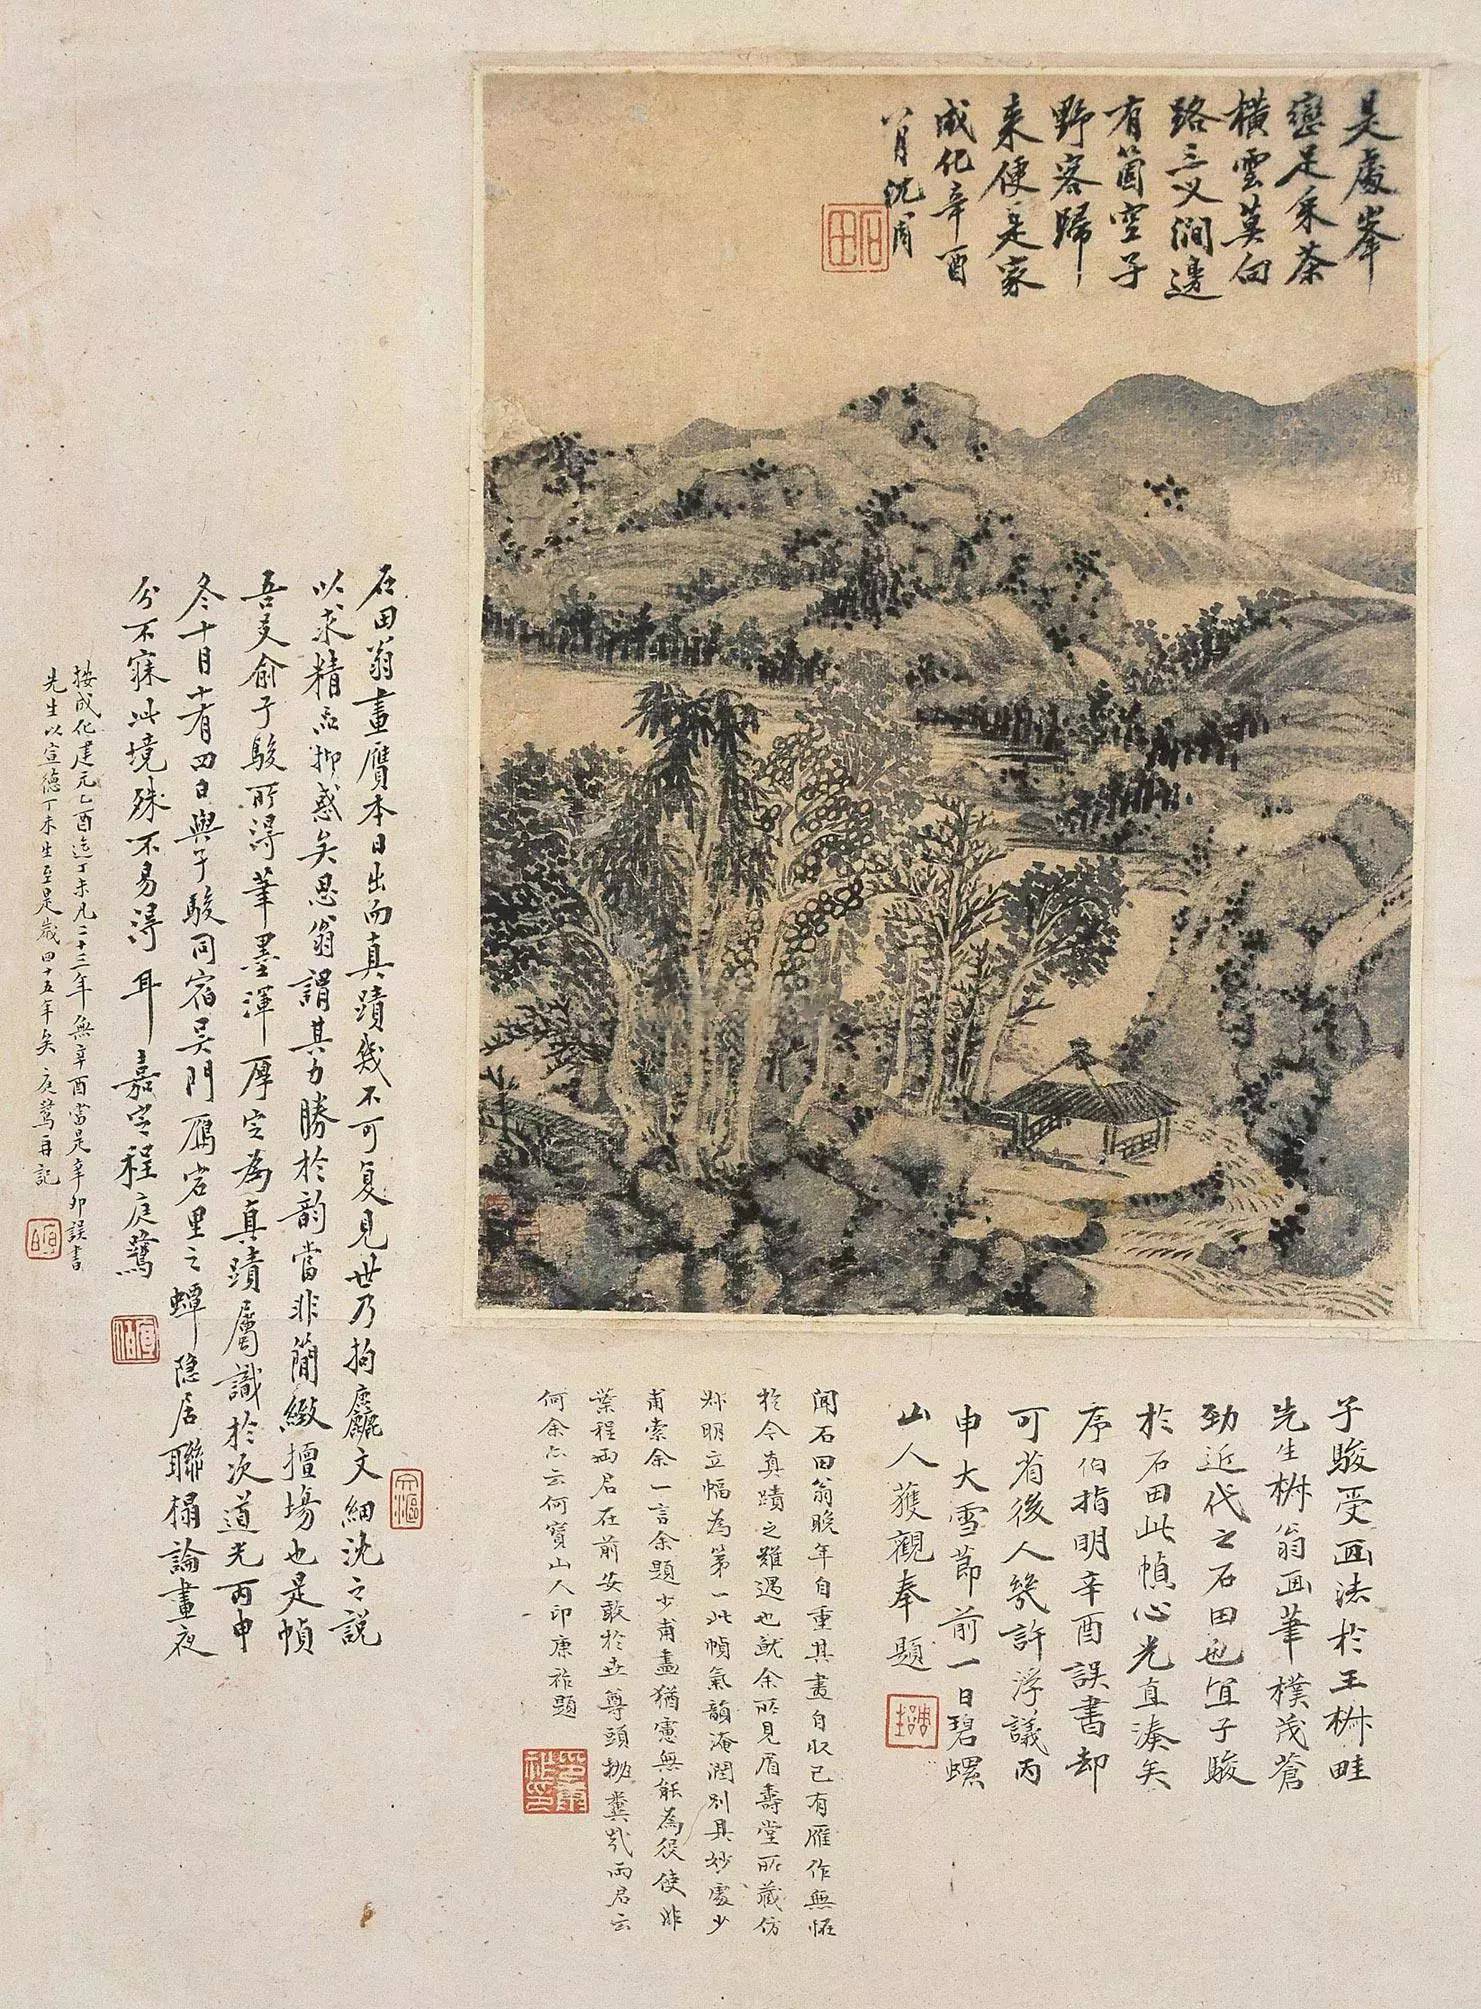 是處峯
巒足采茶
橫雲莫向
路三叉澗邊
有箇空子
野客歸
来便是家
成化辛酉
八月沈周
石田
石田翁畫贗本日出而真蹟幾不可复見世乃拘麤文細沈之說
以求精品抑惑矣思翁謂其力勝於韵當非簡緻擅場也是幀
吾友俞子駿所得筆墨渾厚定為真蹟屬識於次道光丙申
冬十月十有四日與子駿同宿吴門鴈宕里之蟫隐居聯榻論畫夜
分不寐此境殊不易得耳 嘉定程庭鷺
按成化建元乙酉迄丁未凡二十三年無辛酉當是辛卯誤書
先生以宣德丁未生至是歲四十五年矣 庭鷺再記
子駿受画法於王椒畦
先生椒翁画筆樸茂蒼
劲近代之石田也宜子駿
於石田此幀心光直湊矣
序伯指明辛酉誤書却
可省後人幾許浮議丙
申大雪節前一日碧螺
山人獲觀奉題
聞石田翁晚年自重其畫自收已有雁作無怪
於今真蹟之難遇也就余所見眉壽堂所藏仿
叔明立幅為第一此幀氣韻淹潤別具妙處少
甫索余一言余題少甫畫猶憲無能為役使非
葉程兩君在前安敢於㐀尊頭抛糞㢤兩君云
何余亦云何寶山人印康祚題